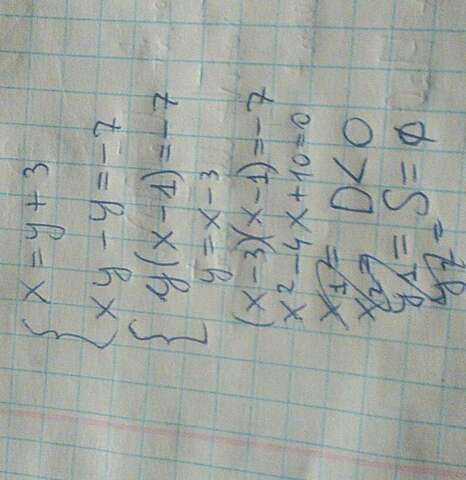 { x = y + 3
x y - y = -7
{ y(x-1) = -7
y = x-3
(x-3)(x-1) = -7
x² - 4x + 10 = 0
x₁ = D < 0
x₂ =
y₁ = S = ∅
y₂ =